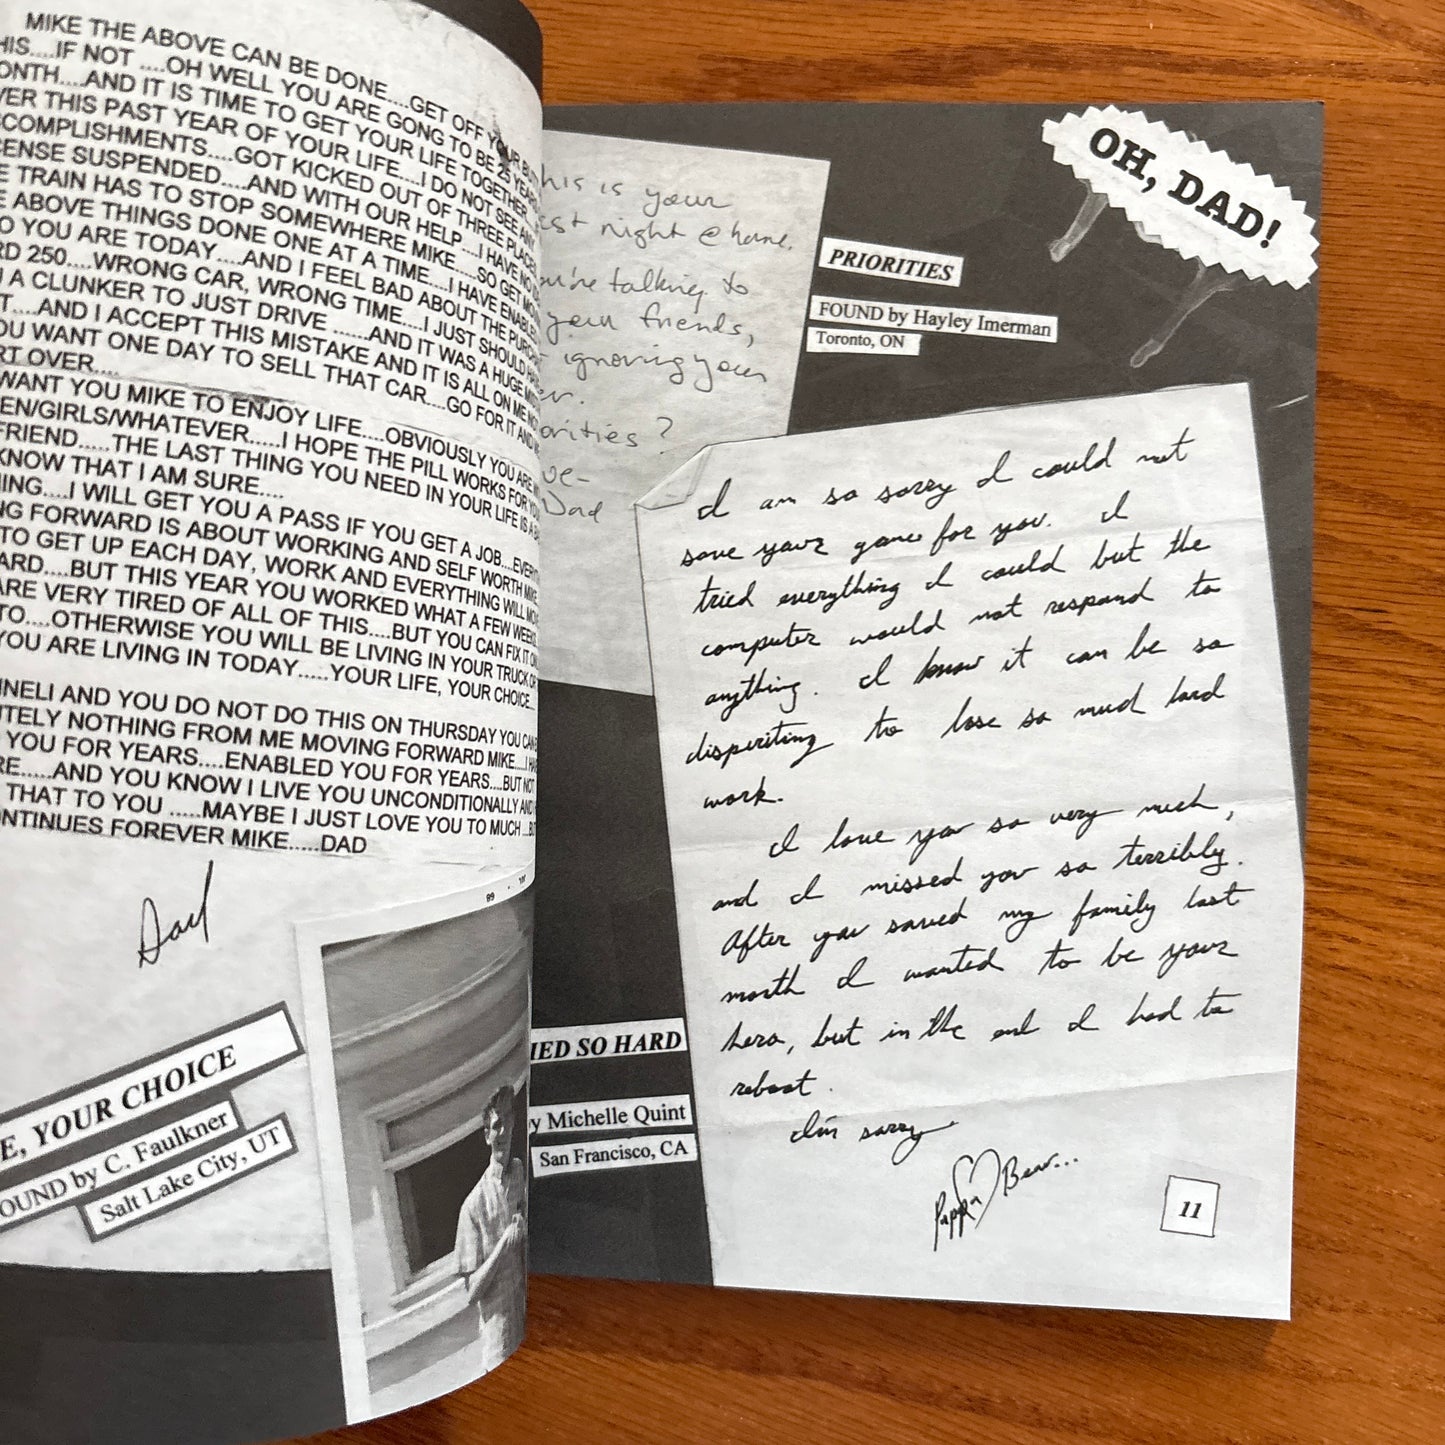 MIKE THE ABOVE CAN BE DONE....GET OFF YOUR BUT
HIS....IF NOT ....OH WELL YOU ARE GONG TO BE 25 YEARS
ONTH....AND IT IS TIME TO GET YOUR LIFE TOGETHER
VER THIS PAST YEAR OF YOUR LIFE....I DO NOT SEE ANY
CCOMPLISHMENTS....GOT KICKED OUT OF THREE PLACES
CENSE SUSPENDED....AND WITH OUR HELP....I HAVE NO
E TRAIN HAS TO STOP SOMEWHERE MIKE....SO GET MOVIN
E ABOVE THINGS DONE ONE AT A TIME....I HAVE ENABLED
O YOU ARE TODAY....AND I FEEL BAD ABOUT THE PURCHA
RD 250....WRONG CAR, WRONG TIME....I JUST SHOULD HAVE
A CLUNKER TO JUST DRIVE .....AND IT WAS A HUGE MIST
T....AND I ACCEPT THIS MISTAKE AND IT IS ALL ON ME NOT
OU WANT ONE DAY TO SELL THAT CAR....GO FOR IT AND
RT OVER....
WANT YOU MIKE TO ENJOY LIFE....OBVIOUSLY YOU ARE
EN/GIRLS/WHATEVER.....I HOPE THE PILL WORKS FOR YOU
FRIEND.....THE LAST THING YOU NEED IN YOUR LIFE IS A BA
KNOW THAT I AM SURE....
HING....I WILL GET YOU A PASS IF YOU GET A JOB....EVERYT
NG FORWARD IS ABOUT WORKING AND SELF WORTH MIKE
TO GET UP EACH DAY, WORK AND EVERYTHING WILL MOV
ARD....BUT THIS YEAR YOU WORKED WHAT A FEW WEEKS
ARE VERY TIRED OF ALL OF THIS....BUT YOU CAN FIX IT
TO....OTHERWISE YOU WILL BE LIVING IN YOUR TRUCK OR
YOU ARE LIVING IN TODAY.....YOUR LIFE, YOUR CHOICE....
INELI AND YOU DO NOT DO THIS ON THURSDAY YOU CAN
UTELY NOTHING FROM ME MOVING FORWARD MIKE....I HAV
YOU FOR YEARS....ENABLED YOU FOR YEARS....BUT NOT
RE.....AND YOU KNOW I LIVE YOU UNCONDITIONALLY AND
THAT TO YOU .....MAYBE I JUST LOVE YOU TO MUCH ...
ONTINUES FOREVER MIKE.....DAD
Dad
E, YOUR CHOICE
OUND by C. Faulkner
Salt Lake City, UT
OH, DAD!
his is your
st night @ home.
ou're talking to
your friends,
ignoring your
er.
orities?
ve-
Dad
PRIORITIES
FOUND by Hayley Imerman
Toronto, ON
I am so sorry I could not
save your game for you. I
tried everything I could but the
computer would not respond to
anything. I know it can be so
dispiriting to lose so much hard
work.
I love you so very much,
and I missed you so terribly.
After you saved my family last
month I wanted to be your
hero, but in the end I had to
reboot.
I'm sorry
Pappa Bear...
IED SO HARD
y Michelle Quint
San Francisco, CA
11